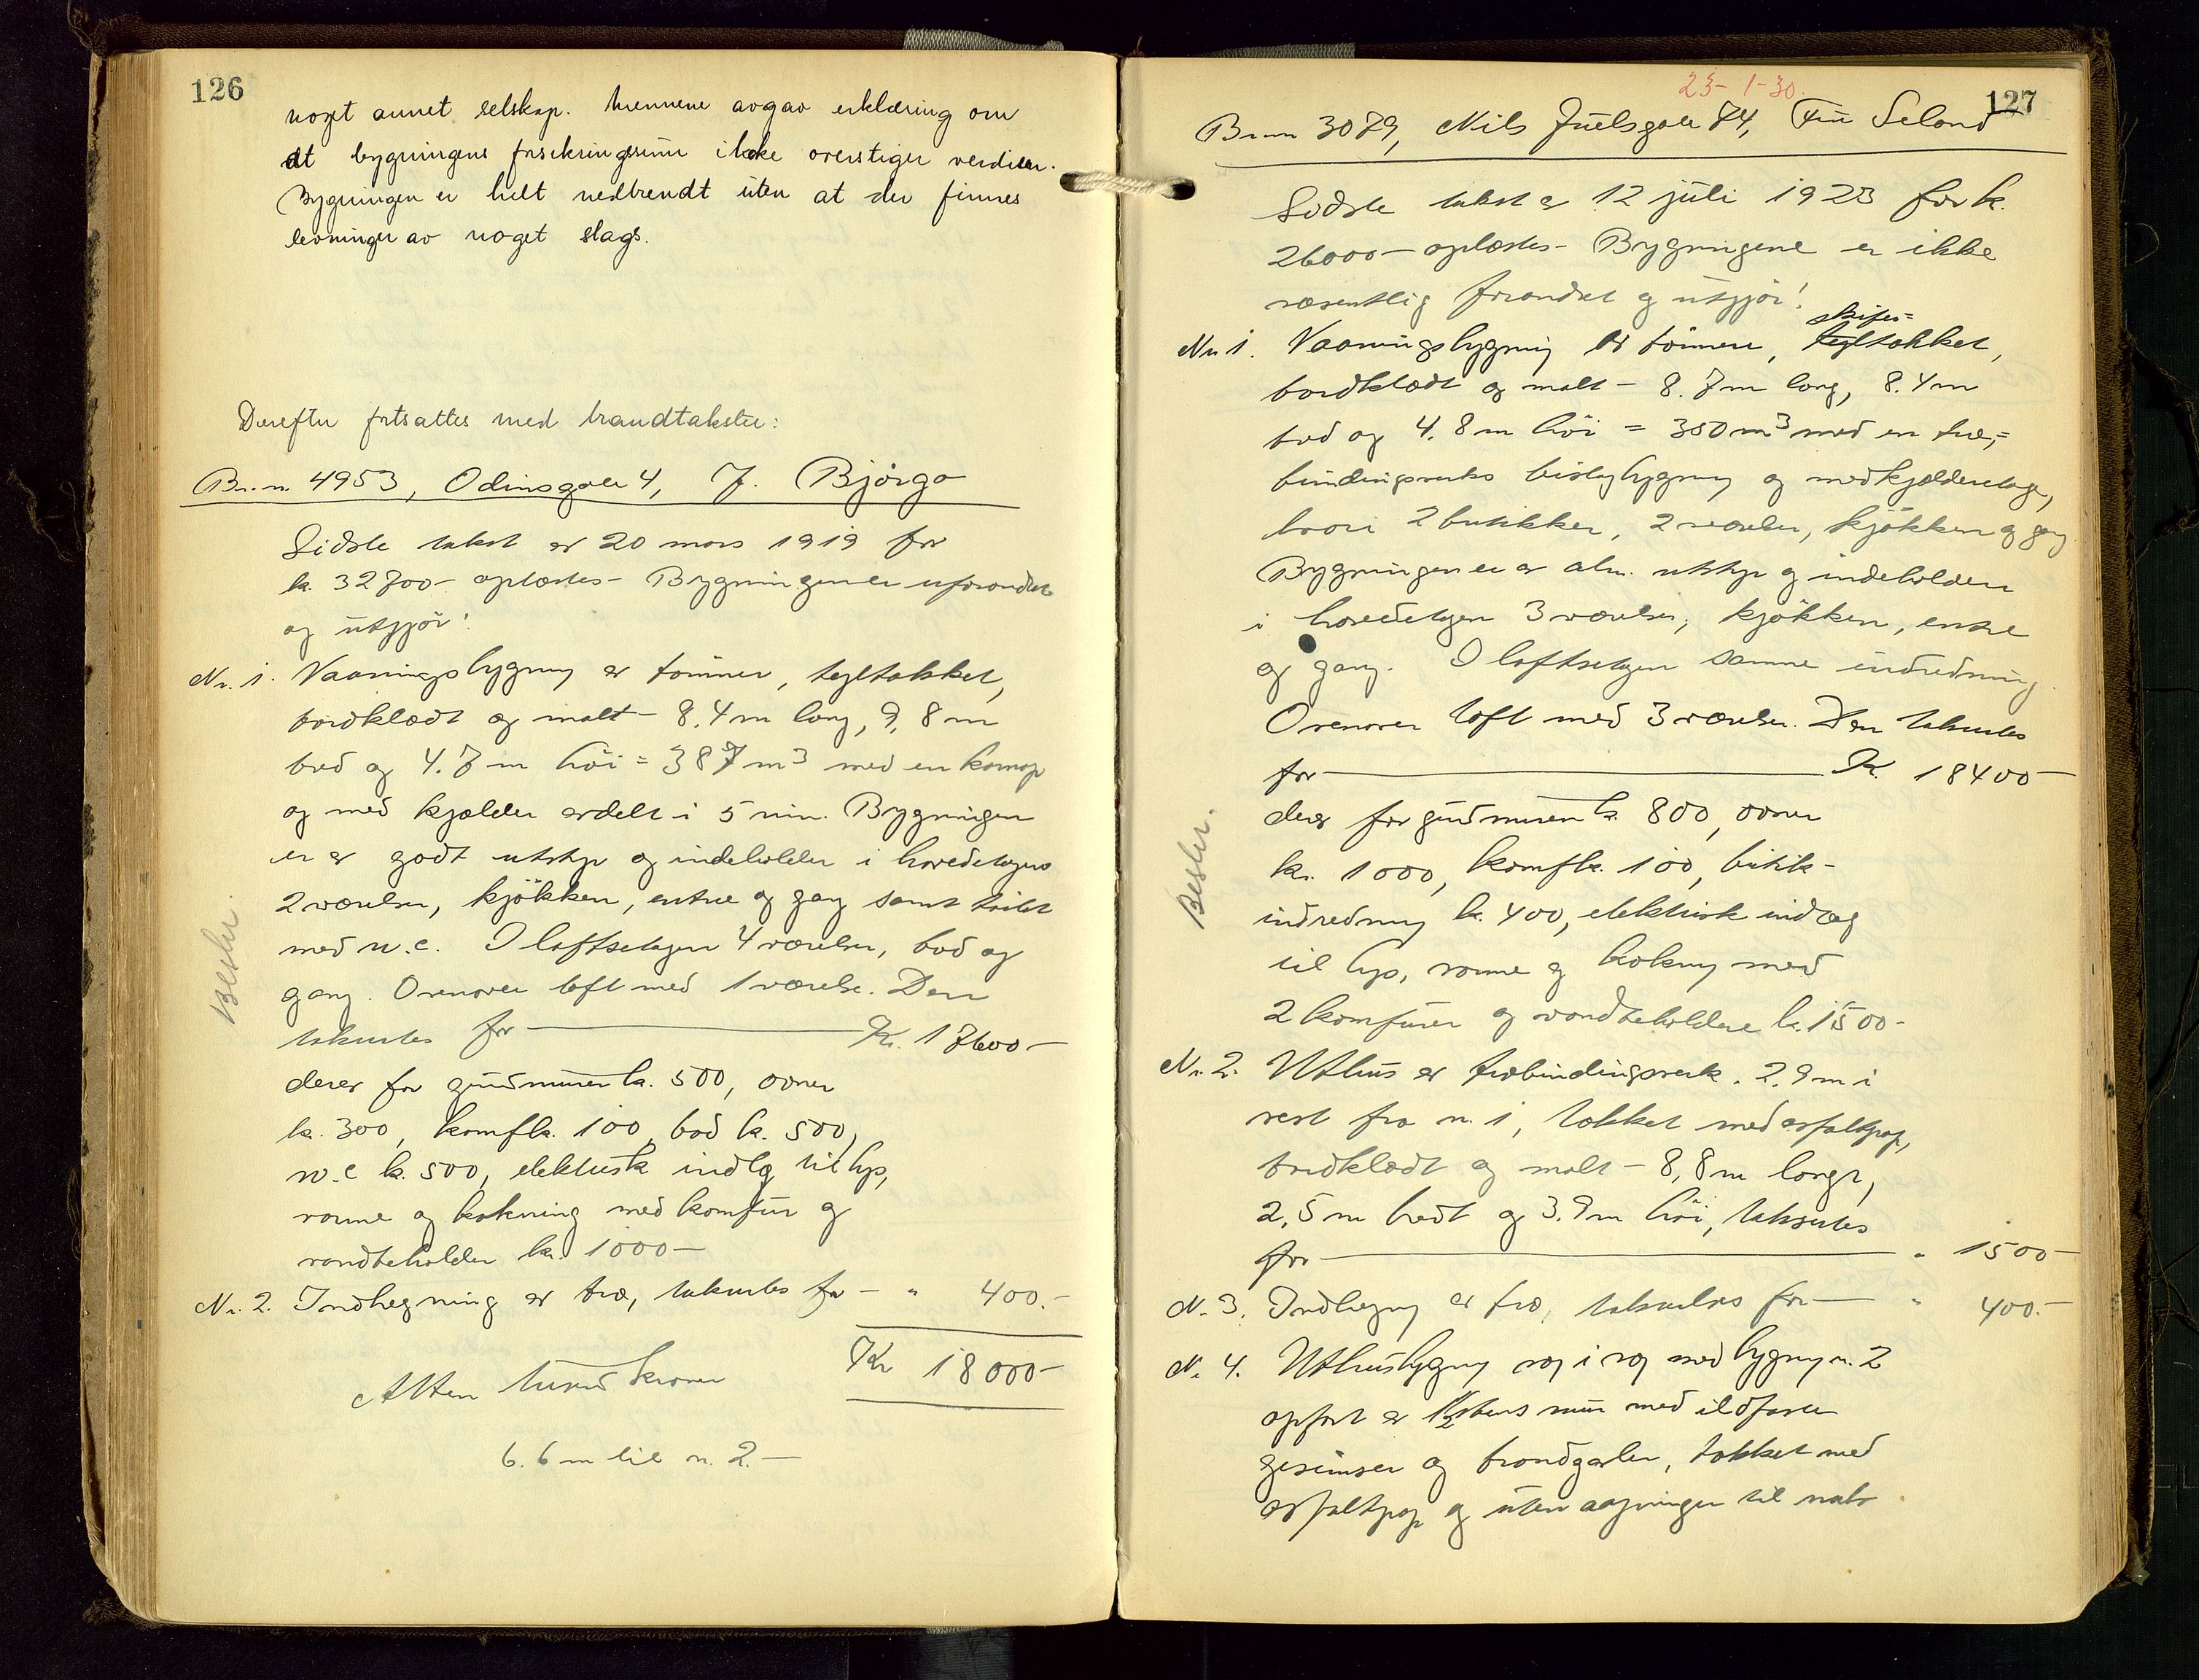 126
noget annet selskap. Mennene avgav erklæring om
at bygningens forsikringssum ikke overstiger verdien.
Bygningen er helt nedbrendt uten at der finnes
levninger av noget slags.
Derefter fortsattes med brandtakster:
Br.n. 4953, Odinsgate 4, J. Bjørgo
Sidste takst av 20 mars 1919 for
kr. 32700- oplæstes - Bygningen er uforandret
og utgjør:
Nr. 1. Vaaningsbygning av tømmer, tegltækket,
bordklædt og malt - 8,4 m lang, 9,8 m
bred og 4.7 m høi = 387 m3 med en kvernop
og med kjælder avdelt i 5 rum. Bygningen
er av godt utstyr og indeholder i hovedetagen
2 værelser, kjøkken, entre og gang samt toilet
med w.c. I loftsetagen 4 værelser, bad og
gang. Ovenover loft med 1 værelse. Den
takseres for Kr. 17600-
derav for grundmuren kr. 500, ovner
kr. 300, komf. kr. 100, bad kr. 500,
w.c kr. 500, elektrisk indlæg til lys,
varme og kokning med komfur og
vandbeholder kr. 1000-
Nr. 2. Indhegning av træ, takseres for - " 400.-
Kr 18000-
Atten tusind kroner
6.6 m til n. 2.-
Besikt.
23-1-30.
127
Br.nr. 3079, Nils Juelsgate 74, Finn Seland
Sidste takst av 12 juli 1923 for kr.
26000- oplæstes - Bygningene er ikke
væsentlig forandret og utgjør:
skifer-
Nr. 1. Vaaningsbygning av tømmer, tegltækket,
bordklædt og malt - 8.7 m lang, 8.4 m
bred og 4.8 m høi = 350 m3 med en træ-
bindingsverks bislagbygning og med kjælderetage,
hvori 2 butikker, 2 værelser, kjøkken og gang
Bygningen er av alm. utstyr og indeholder
i hovedetagen 3 værelser, kjøkken, entre
og gang. I loftsetagen samme indredning
Ovenover loft med 3 værelser. Den takseres
for Kr. 18400-
derav for grundmuren kr. 800, ovner
kr. 1000, komf. kr. 100, butik-
indredning kr. 400, elektrisk indlæg
til lys, varme og kokning med
2 komfurer og vandbeholdere kr. 1500-
Nr. 2. Uthus av træbindingsverk. 2.9 m i
vest fra n. 1, tækket med asfaltpap,
bordklædt og malt - 8,8 m langt,
2,5 m bredt og 3.9 m høi, takseres
for " 1500-
N. 3. Indhegning av træ, takseres for " 400.-
N. 4. Uthusbygning væg i væg med bygning n. 2
opført av 1/2 stens mur med ildfaste
gesimser og brandgavler, tækket med
asfaltpap og uten aapninger til nabo
Besikt.